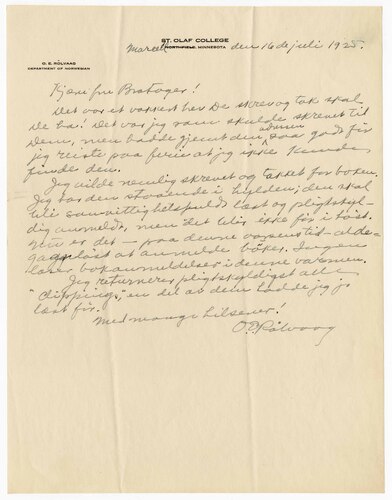 ST. OLAF COLLEGE
NORTHFIELD, MINNESOTA
Marcell den 16de juli 1925.
O. E. RÖLVAAG
DEPARTMENT OF NORWEGIAN
Kjære fru Bratager!
Det var et vakkert brev De skrev og tak skal
De ha! Det var jeg som skulde skrevet til
Dem, men hadde gjemt den saa godt før
jeg reiste paa ferie at jeg ikke kunde
finde den.
Jeg vilde nemlig skrevet og takket for boken.
Jeg har den staaende i hylden; den skal
bli samvittighetsfuldt læst og pligtskyl-
dig anmeldt, men det blir ikke før i høst.
Nu er det – paa denne aarsens tid – alde-
les galskap at anmelde bøker. Ingen
læser bokanmeldelser i denne varmen.
Jeg returnerer pligtskyldigst alle
"clippings," en del av dem hadde jeg jo
læst før.
Med mange hilsener!
O E Rölvaag